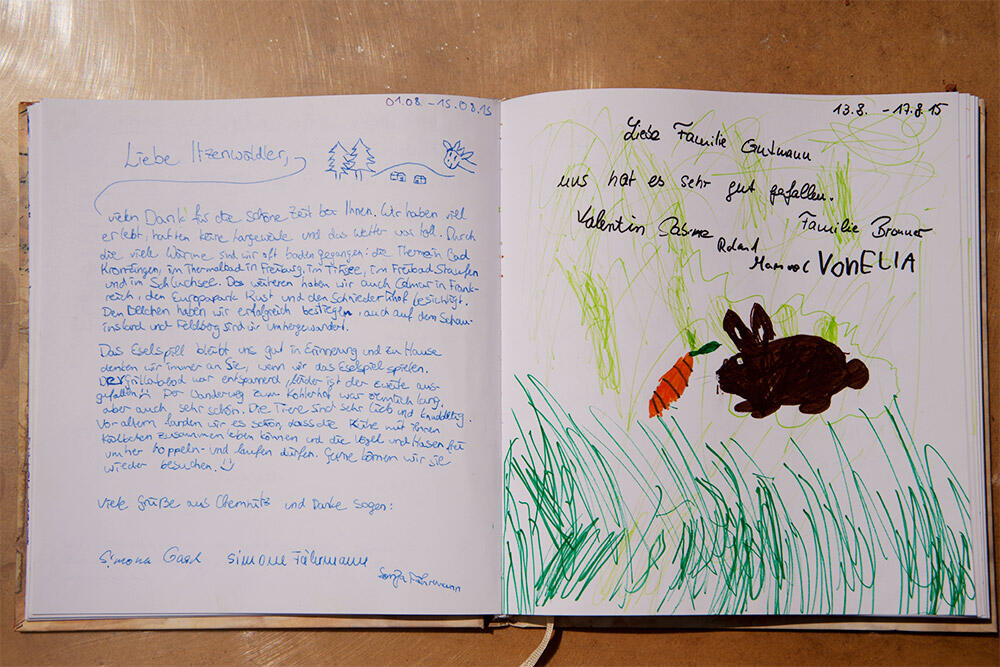 01.08. - 15.08.15
Liebe Itzenwaldler,
vielen Dank für die schöne Zeit bei Ihnen. Wir haben viel
erlebt, hatten keine Langeweile und das Wetter war toll. Durch
die viele Wärme sind wir oft baden gegangen: die Therme in Bad
Krontzingen, im Thermalbad in Freiburg, im Titisee, im Freibad Staufen
und im Schluchsee. Des weiteren haben wir auch Colmar in Frank-
reich, den Europapark Rust und den Schniederlihof besichtigt.
Den Belchen haben wir erfolgreich bestiegen, auch auf dem Schau-
insland und Feldberg sind wir umhergewandert.
Das Eselspiel bleibt uns gut in Erinnerung und zu Hause
denken wir immer an Sie, wenn wir das Eselspiel spielen.
Der Grillabend war entspannend, leider ist der zweite aus-
gefallen. Der Wanderweg zum Kohlerhof war ziemlich lang,
aber auch sehr schön. Die Tiere sind sehr lieb und knuddelig.
Vor allem fanden wir es schön, dass die Kühe mit ihren
Kälbchen zusammen leben können und die Vögel und Hasen frei
umher hoppeln- und laufen dürfen. Gerne kommen wir Sie
wieder besuchen.
Viele Grüße aus Chemnitz und Danke sagen:
Simona Simone Fährmann
13.8. - 17.8.15
Liebe Familie Gutmann
uns hat es sehr gut gefallen.
Valentin Sabine Familie Bronner
Roland
VON ELIA